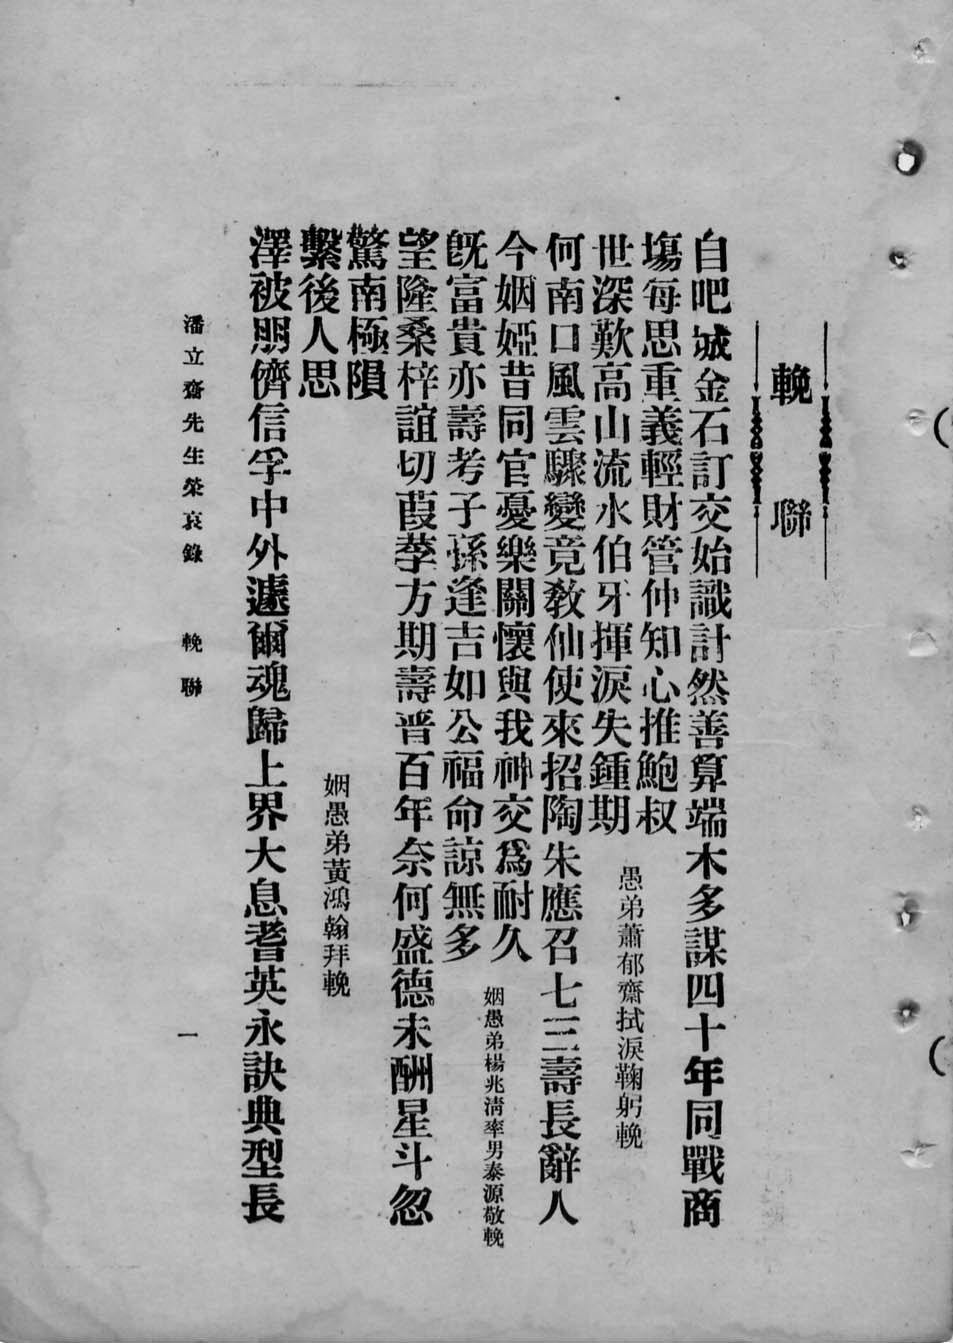 輓聯
自吧城金石訂交始識計然善算端木多謀四十年同戰商
塲每思重義輕財管仲知心推鮑叔
世深歎高山流水伯牙揮淚失鍾期
愚弟蕭郁齋拭淚鞠躬輓
何南口風雲驟變竟教仙使來招陶朱應召七三壽長辭人
今姻婭昔同官憂樂關懷與我神交爲耐久
旣富貴亦壽考子孫逢吉如公福命諒無多
姻愚弟楊兆淸率男泰源敬輓
望隆桑梓誼切葭莩方期壽晋百年奈何盛德未酬星斗忽
驚南極隕
繫後人思
姻愚弟黃鴻翰拜輓
澤被朋儕信孚中外遽爾魂歸上界大息耆英永訣典型長
潘立齋先生榮哀錄 輓聯 一